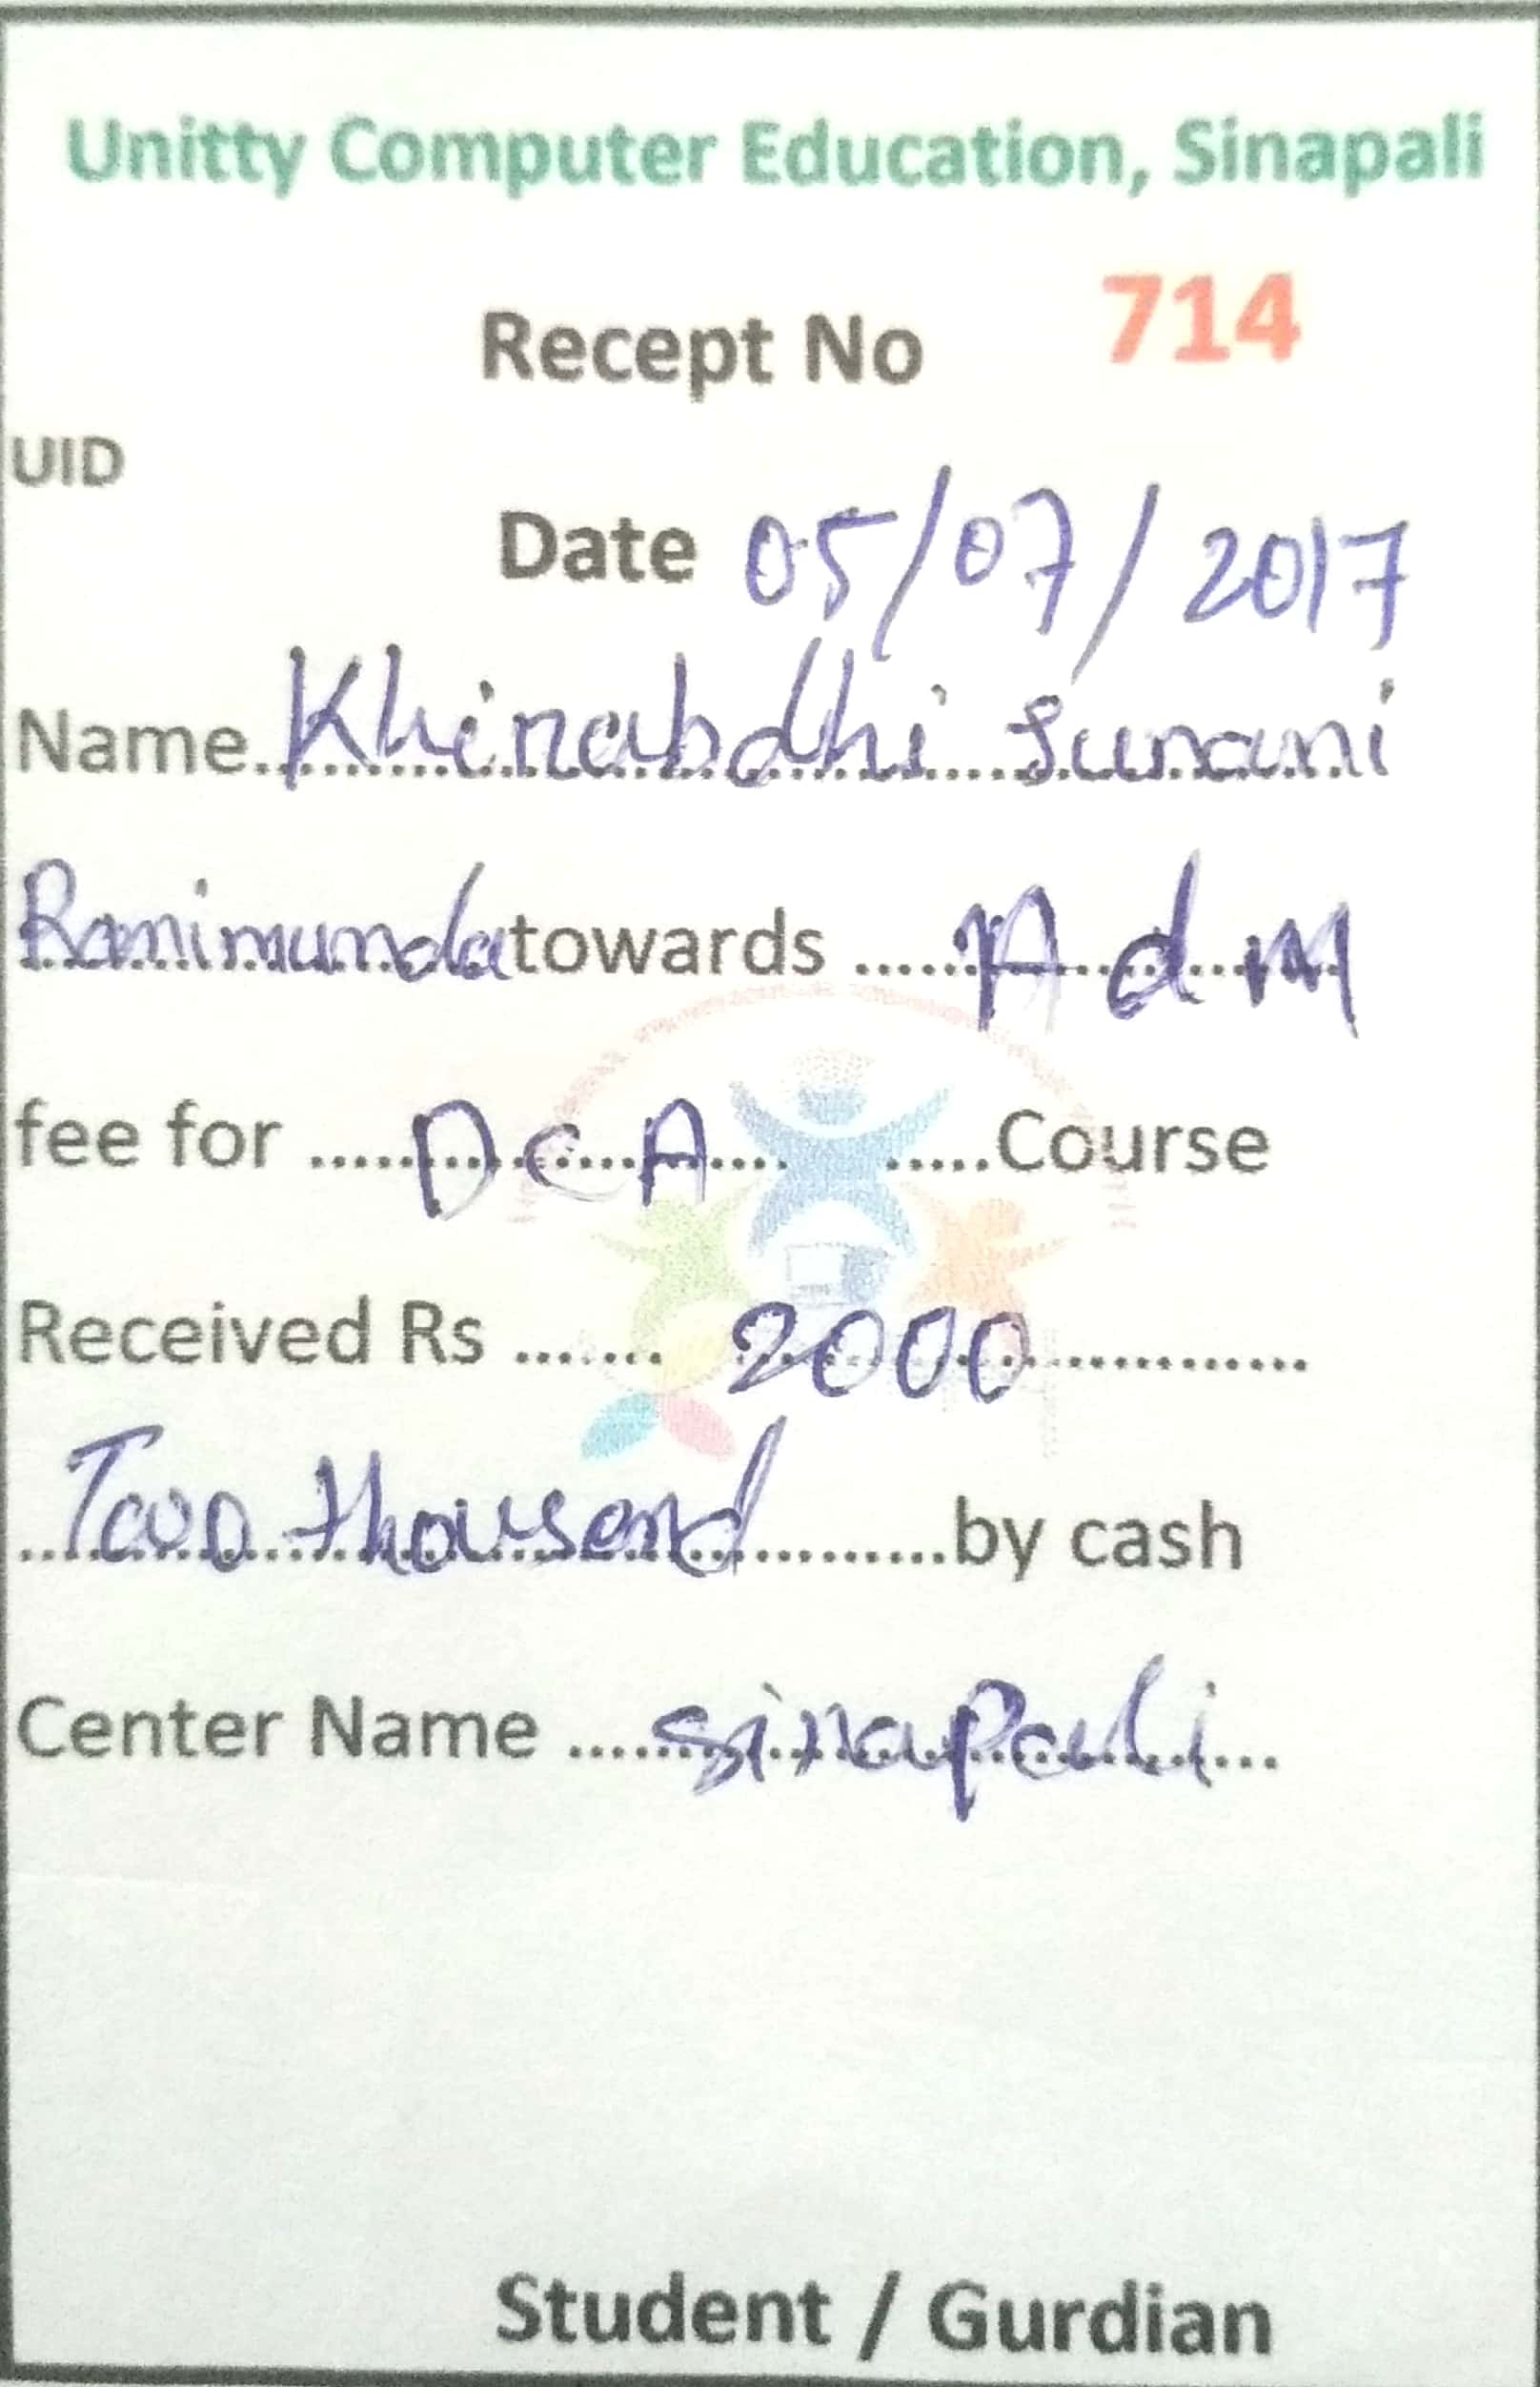 Unitty Computer Education, Sinapali
Recept No 714
UID
Date 05/07/2017
Name Khirabdhi Sunani
Ranimunda towards ...... Adm
fee for ...... DCA ...... Course
Received Rs ....... 2000 ..............
Two thousand ..........by cash
Center Name .... sinapali ...
Student / Gurdian